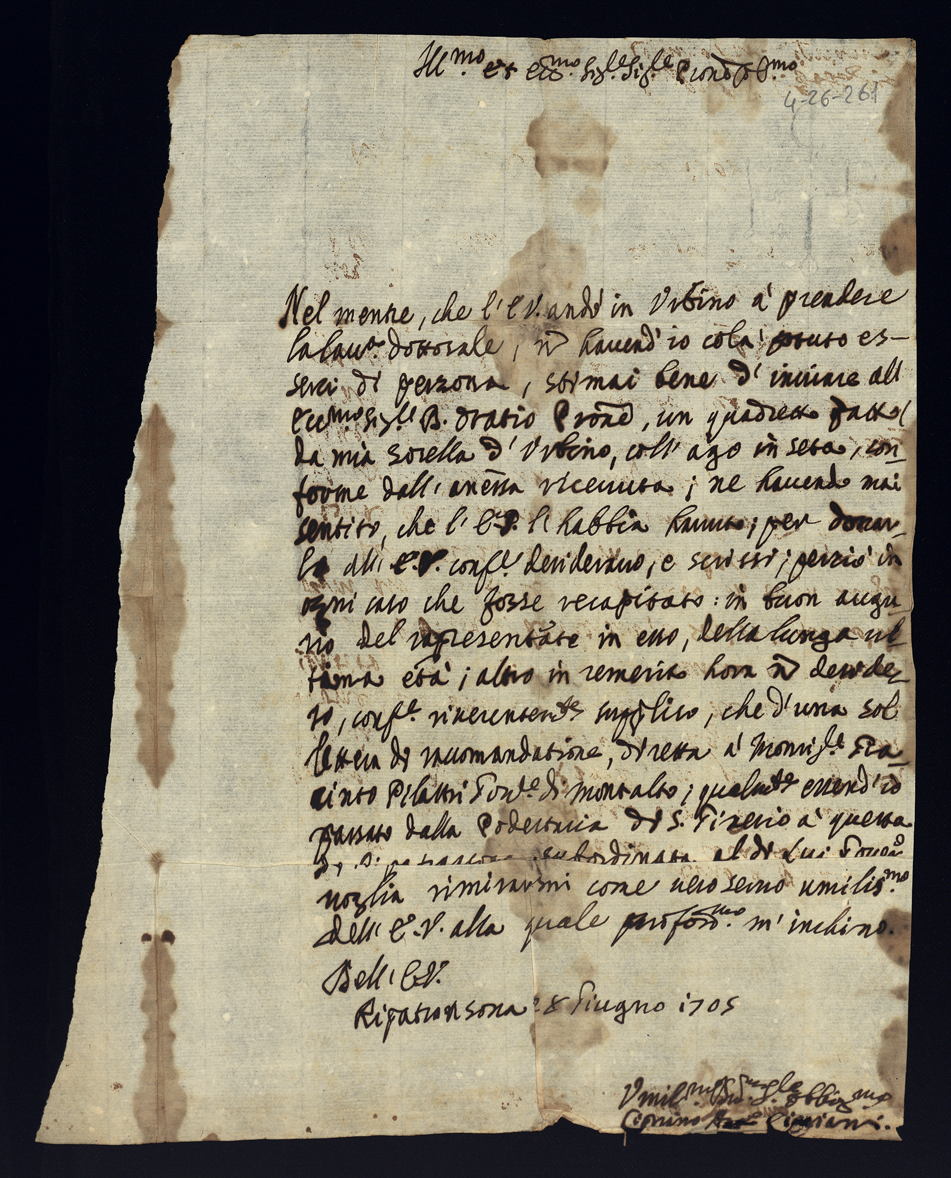 Ill.mo et ecc.mo Sig.le Sig.le Pron
4-26-261
Nel mentre, che l'E.V. andò in Urbino à prendere
la lau.a dottorale, nō havend'io colà potuto es-
serci di persona, stimai bene d'inviare all
Ecc.mo Sig.le B. Oratio Pron̄e, un quadretto fatto
da mia sorella d'Urbino, coll'ago in seta, con-
forme dall'anessa ricevuta; ne havendo mai
sentito, che l'E.V. l'habbia havuto; per donar-
lo all'E.V. conf.e desideravo, e scrissi; perciò in
ogni caso che fosse recapitato: in buon augu-
rio del rapresentāte in esso, della lunga ul-
tima età; altro in remerito hora nō deside-
ro, conf.e riverentem.te supplico, che d'una sol
lettera di racomandatione, diretta à Monsig.e Gia-
cinto Pilastri Gov.e di Montalto; qualm.te essend'io
passato dalla Podestaria di S. Ginesio à questa
di Ripatransone subordinata al di lui
voglia rimirarmi come vero servo umilis.mo
dell'E.V. alla quale profon.mo m'inchino.
Dell'E.V.
Ripatransona 8 Giugno 1705
Umil.mo obblig.mo
Cipriani.